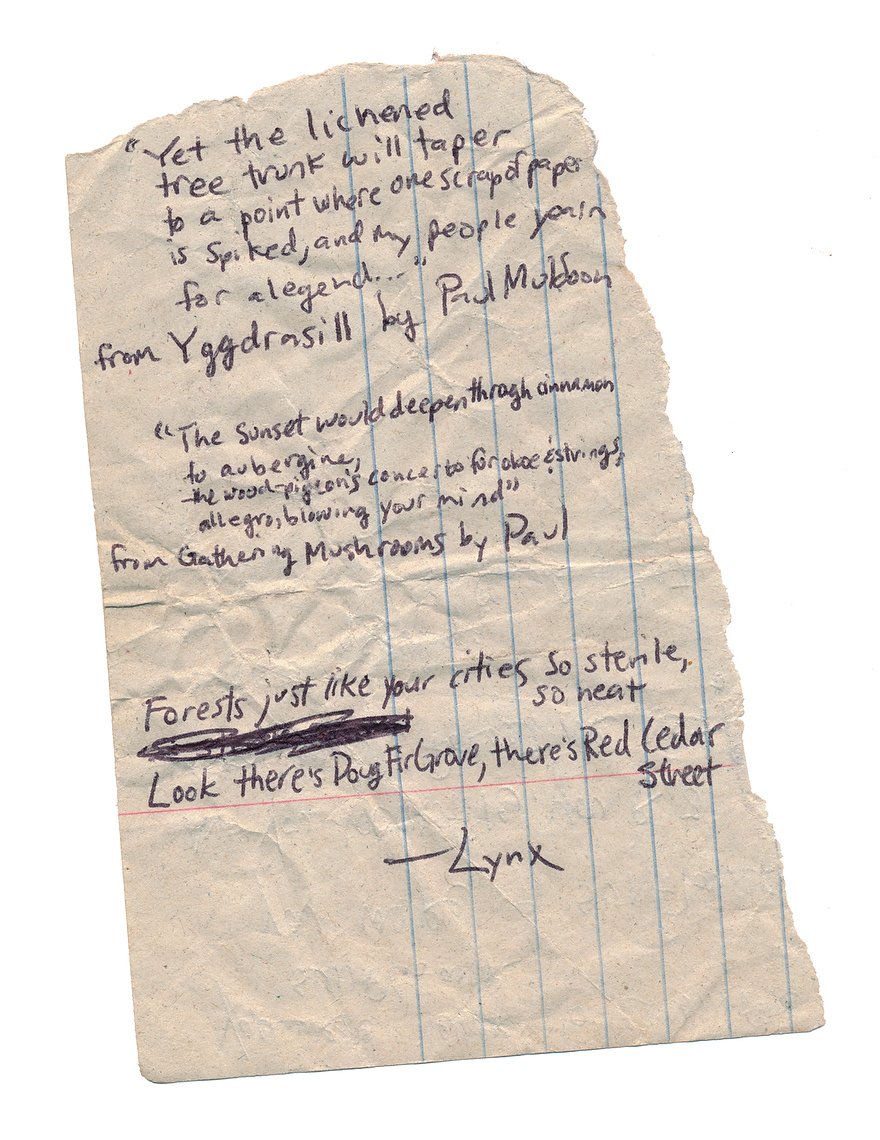 "Yet the lichened
tree trunk will taper
to a point where one scrap of paper
is spiked, and my people yearn
for a legend..."
from Yggdrasill by Paul Muldoon
"The sunset would deepen through cinnamon
to aubergine,
the wood-pigeon's concerto for oboe & strings,
allegro, blowing your mind"
from Gathering Mushrooms by Paul
Forests just like your cities so sterile,
so neat
Look there's Doug Fir Grove, there's Red Cedar
Street
—Lynx